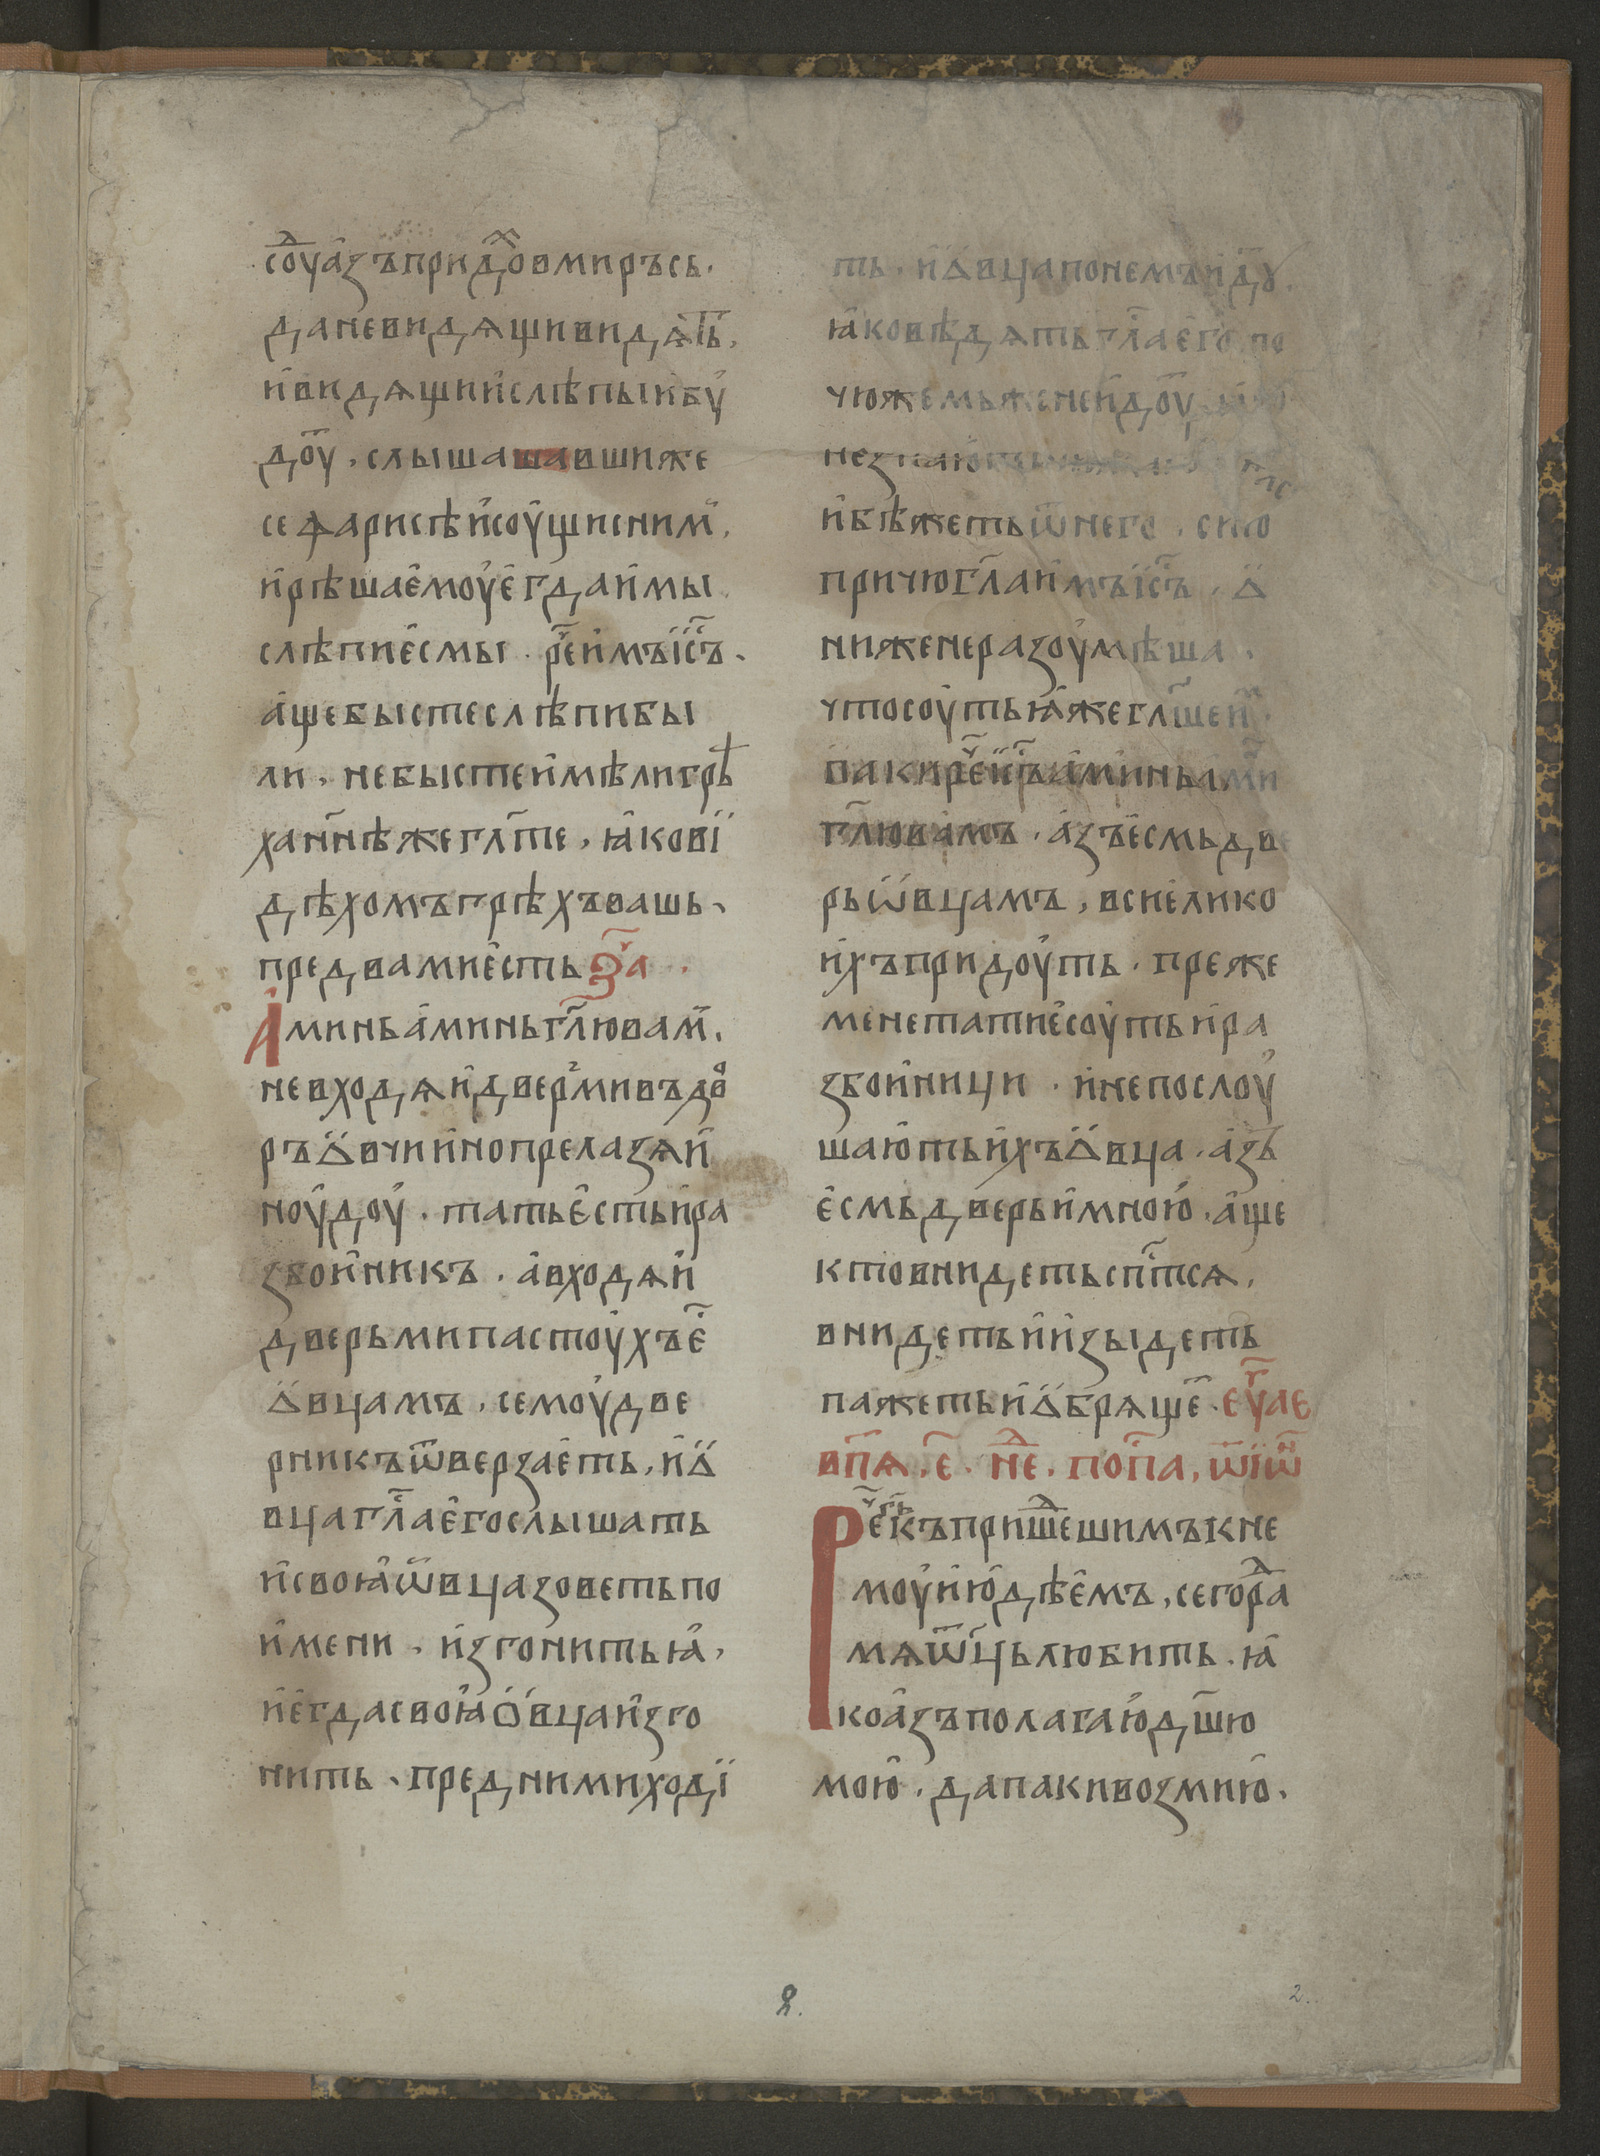 сꙋ҃ азъ придⷯо вмиръ сь.
да невидѧщи видѧтⸯь,
и҆видѧщии҆ слѣпыи҆ бꙋ
дⷮоу. слышашавшиже
се фарисѣи҆ соу҆щи сниⷨ.
и҆рѣша е҆моу҆ е҆гда и҆мы
слѣпи е҆смы. рⷱе и҆мъ і҆с҃ъ.
а҆ще бысте слѣпи бы
ли. небысте и҆мѣли грѣ
ха нн҃ѣже гл҃те, ꙗ҆ко вї
дѣхомъ грѣхъ вашь.
пред вами е҆сть за҃ч.
А҆минь а҆минь гл҃ю ваⷨ.
невходѧи҆ дверⸯми въ дво
ръ ѡ҆вчии҆ но прелазѧ и҆
ноу҆доу҆. тать е҆сть и҆ ра
збои҆никъ. а҆ входѧи҆
дверьми пастоу҆хъ е҆ⷭ҇
ѡ҆вцамъ. семоу҆ две
рникъ ѿверзае҆ть, и҆ѡ҆
вца гл҃а е҆го слышать
и҆своꙗ҆ ѡ҆вца зоветь по
и҆мени. и҆згонить ꙗ҆,
и҆ е҆гда своꙗ҆ ѻ҆вца и҆зго
нить. пред ними ходї
ть. и҆ ѡ҆вца понемъ и҆дꙋⷮ.
ꙗ҆ко вѣдѧть гл҃а е҆го. по
чюжемьже неи҆доу҆ⷮ
незнаю҆
и҆бѣжеть ѿ него. сию
причю гл҃а и҆мъ і҆с҃ъ. ѡ҆
ниже неразоу҆мѣша.
что соу҆ть ꙗ҆же гл҃ше и҆ⷨ.
паки рⷱе и҆ⷭ҇ъ а҆минь а҆ми
гл҃ю ва҆мъ. а҆зъ е҆смь две
рь ѡ҆вцамъ, вси е҆лико
и҆хъ придоу҆ть. преже
мене тати е҆соу҆ть и҆ ра
збои҆ници. и҆ непослоу҆
шаю҆ть и҆хъ ѡ҆вца. а҆зъ
е҆смь дверь и҆ мною҆. а҆ще
кто внидеть сп҃тсѧ,
внидеть и҆ и҆зыдеть
пажеть и҆ѡ҆брѧщеⷮ. еу҆ⷢ҇ а е
в пⷮѧ. е҃. нⷣе. попⷭ҇а, ѿ і҆ѡⷩ
Реⷱ къ пришⷣешимъ кне
моу҆ и҆ю҆дѣе҆мъ, се гоⷣ ра
мѧ ѿц҃ь любить. ꙗ҆
ко а҆зъ полагаю҆ дш҃ю
мою҆. да паки возмию҆.
2.
2.